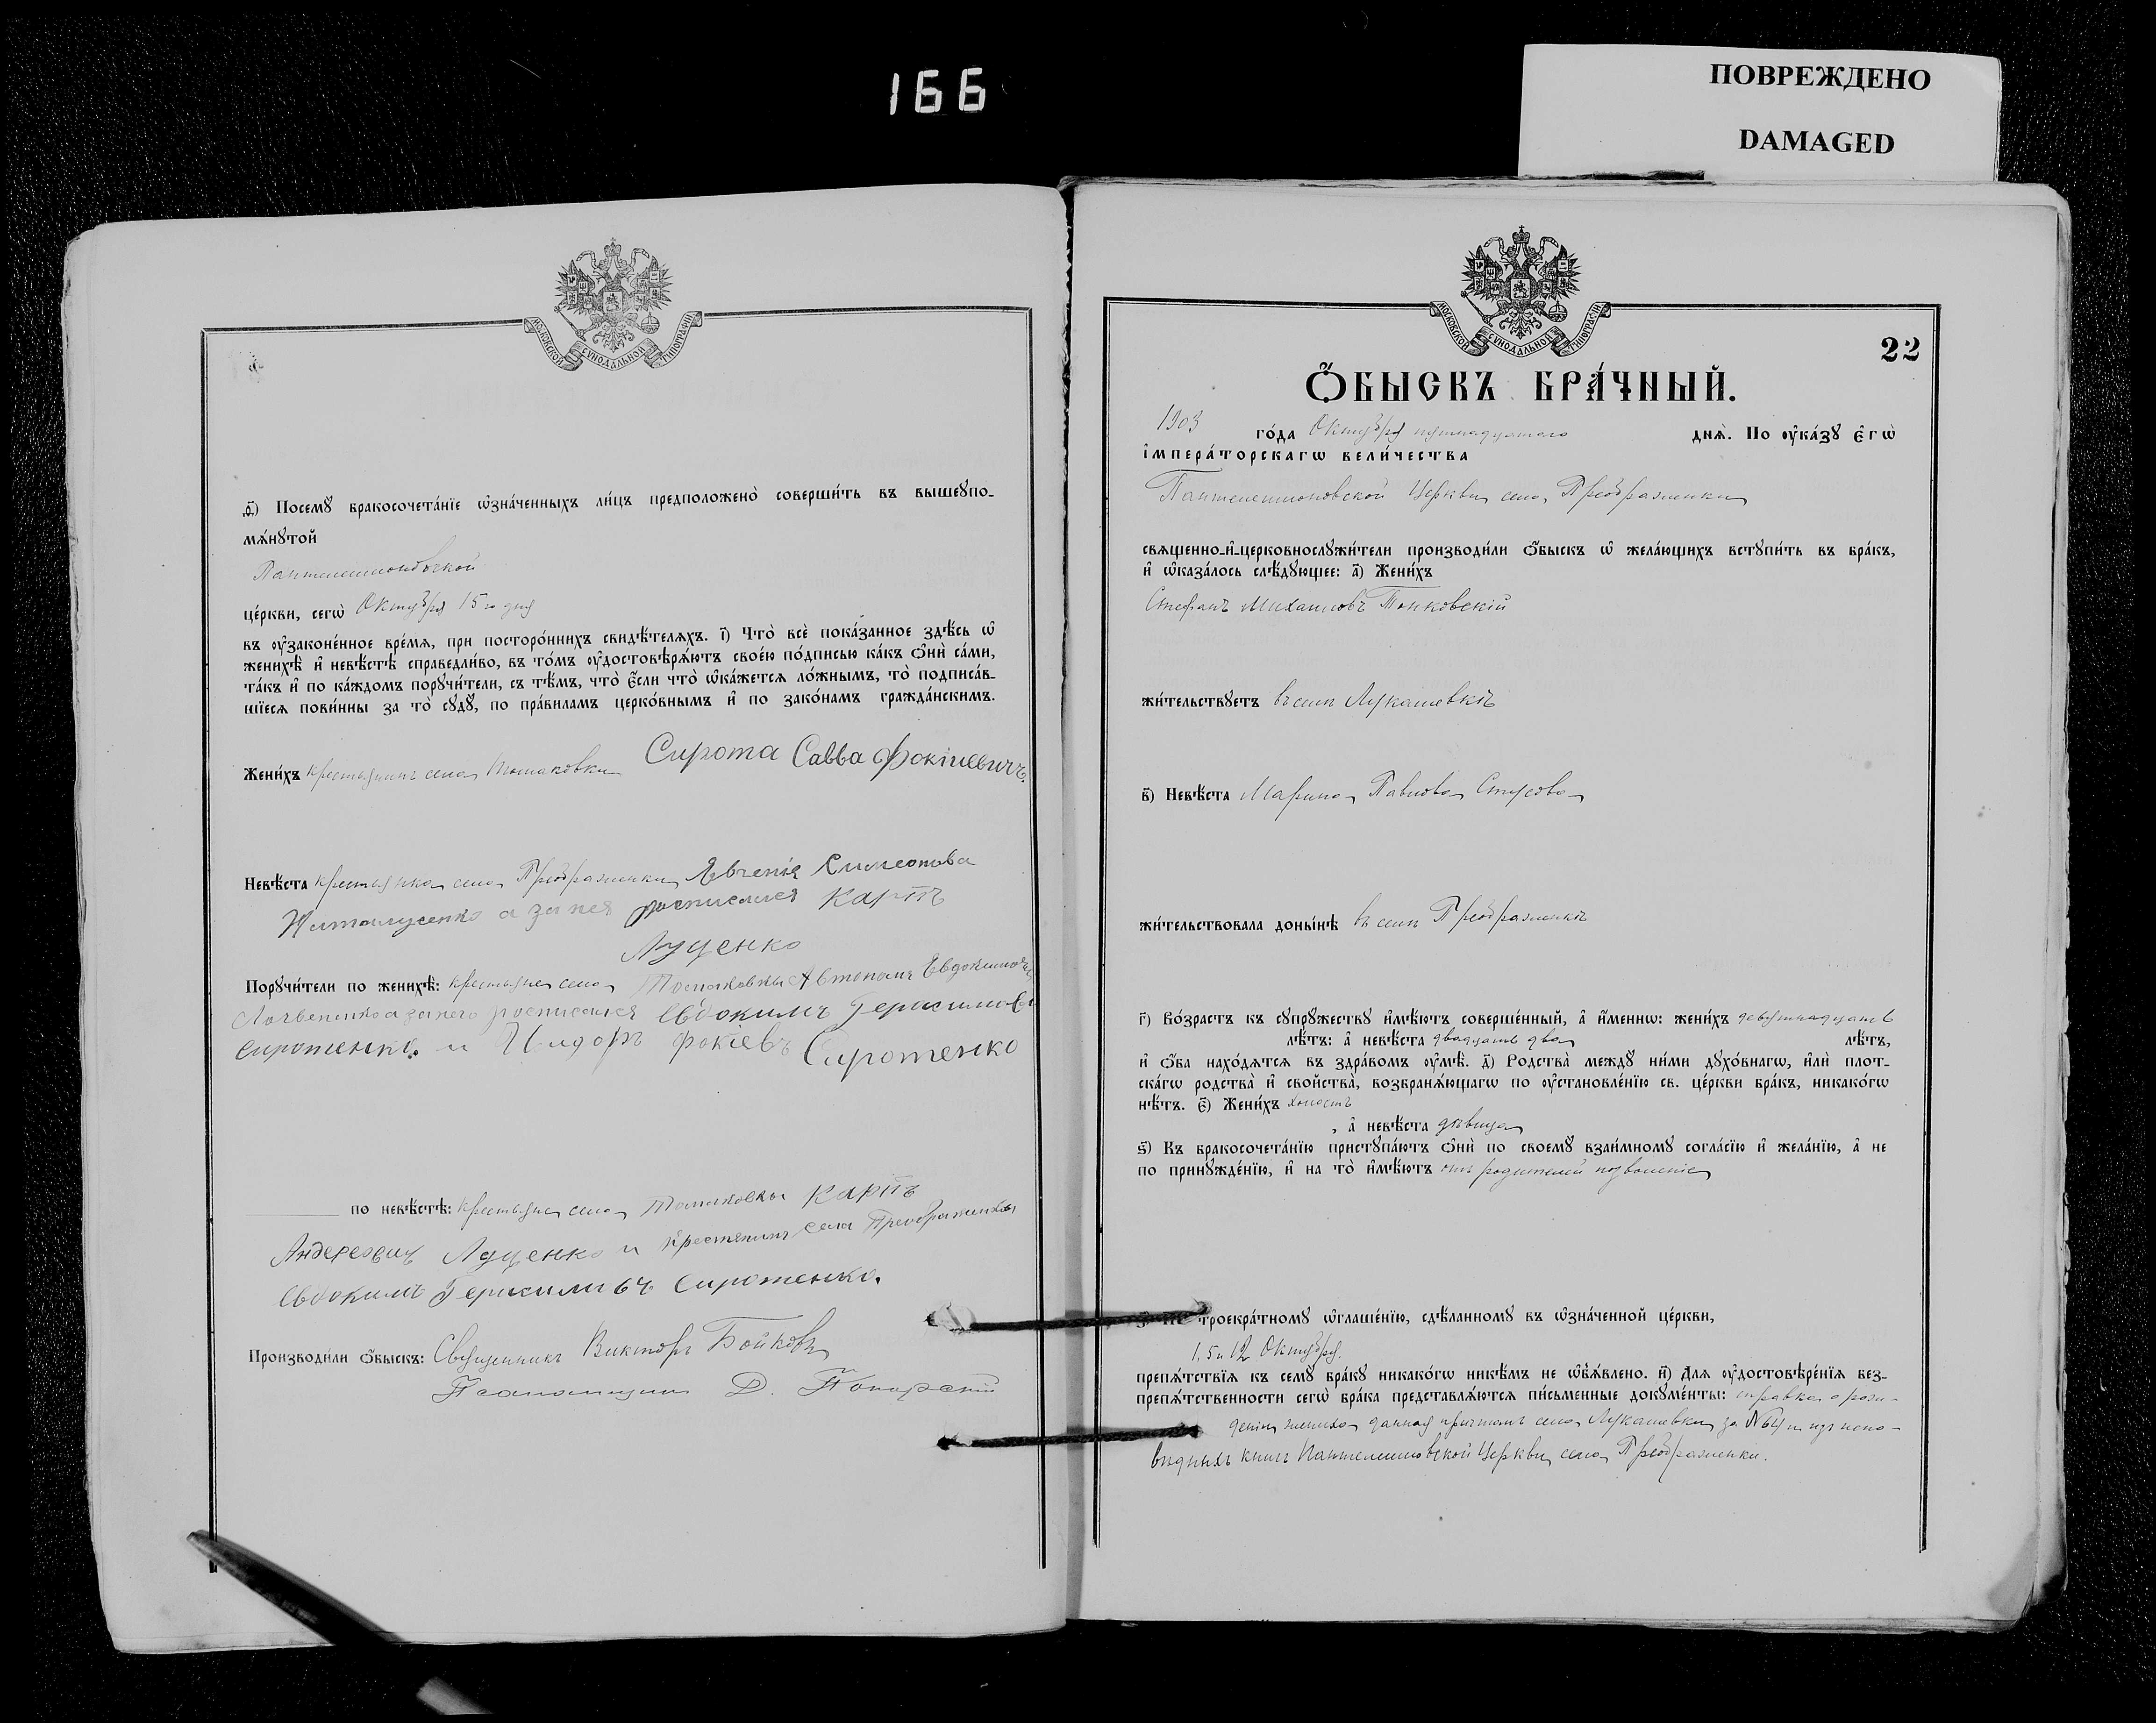 166
ПОВРЕЖДЕНО
DAMAGED
МОСКОВСКОЙ СѴНОДАЛЬНОЙ ТИПОГРАФІИ
ѳ҃) Посемꙋ̀ бракосочета́нїе ѡ҆зна́ченныхъ ли́цъ предположено̀ соверши́ть въ вышеꙋпо-
мѧ́нꙋтой
Пантелеимоновской
це́ркви, сегѡ̀ Октября 15го дня
въ ᲂу҆зако́ненное вре́мѧ, при посторо́ннихъ свидѣ́телѧхъ. і҃) Что̀ всѐ пока́занное здѣ́сь ѡ҆
женихѣ̀ и҆ невѣ́стѣ справедли́во, въ то́мъ ᲂу҆достовѣрѧ́ютъ свое́ю по́дписью ка́къ ѻ҆нѝ са́ми,
та́къ и҆ по ка́ждомъ порꙋчи́тели, съ тѣ́мъ, что̀ є҆́сли что̀ ѡ҆ка́жется ло́жнымъ, то̀ подписа́в-
шїесѧ пови́нны за то̀ сꙋдꙋ̀, по пра́виламъ церко́внымъ и҆ по зако́намъ гражда́нскимъ.
Жени́хъ крестьянинъ села Томаковки Сирота Савва Фокіиевичъ.
Невѣ́ста крестьянка села Преображенки Явгенія Симеонова
а за нея росписался Карпъ
Луценко
Порꙋчи́тели по женихѣ̀: крестьяне села Томаковки Автеномъ Евдокимовъ
а за него росписался Евдокимъ Герасимовъ
Сиротенко. и Исидоръ Фокіевъ Сиротенко
по невѣ́стѣ: крестьяне села Томаковки Карпъ
Андреевичъ Луценко и крестянинъ села Преображенки
Евдокимъ Герасимовъ Сиротенко.
Производи́ли ѻ҆́быскъ: Священникъ Викторъ Бойковъ
Псаломщикъ Д.
МОСКОВСКОЙ СѴНОДАЛЬНОЙ ТИПОГРАФІИ
22
Ѻ҆́БЫСКЪ БРА́ЧНЫЙ.
1903 го́да Октября пятнадцатаго днѧ̀. По ᲂу҆ка́зꙋ є҆гѡ̀
і҆мпера́торскагѡ вели́чества
Пантелеимоновской Церкви села Преображенки
свѧщенно-и҆-церковнослꙋжи́тели производи́ли ѻ҆́быскъ ѡ҆ жела́ющихъ встꙋпи́ть въ бра́къ,
и҆ ѡ҆каза́лось слѣ́дꙋющее: а҃) Жени́хъ
Стефанъ Михаиловъ Тонковскій
жи́тельствꙋетъ въ селѣ Лукашевкѣ
в҃) Невѣ́ста Марина Павлова Стусова
жи́тельствовала доны́нѣ въ селѣ Преображенкѣ
г҃) Во́зрастъ къ сꙋпрꙋ́жествꙋ и҆мѣ́ютъ соверше́нный, а҆ и҆́меннѡ: жени́хъ девятнадцать
лѣ́тъ: а҆ невѣ́ста двадцать два лѣ́тъ,
и҆ ѻ҆́ба нахо́дѧтсѧ въ здра́вомъ ᲂу҆мѣ̀. д҃) Родства̀ междꙋ̀ ни́ми дꙋхо́внагѡ, и҆лѝ плот-
ска́гѡ родства̀ и҆ сво́йства̀, возбранѧ́ющагѡ по ᲂу҆становле́нїю св. це́ркви бра́къ, никако́гѡ
нѣ́тъ. є҃) Жени́хъ холостъ
, а҆ невѣ́ста дѣвица
ѕ҃) Къ бракосочета́нїю пристꙋпа́ютъ ѻ҆нѝ по своемꙋ̀ взаи́мномꙋ согла́сїю и҆ жела́нїю, а҆ не
по принꙋжде́нїю, и҆ на то̀ и҆мѣ́ютъ отъ родителей позволеніе
троекра́тномꙋ ѡ҆глаше́нїю, сдѣ́ланномꙋ въ ѡ҆зна́ченной це́ркви,
1, 5 и 12 Октября.
препѧ́тствїѧ къ семꙋ̀ бра́кꙋ никако́гѡ никѣ́мъ не ѡ҆б̾ѧ́влено. и҃) Длѧ ᲂу҆достовѣре́нїѧ без-
препѧ́тственности сегѡ̀ бра́ка представлѧ́ютсѧ пи́сьменные докꙋме́нты: справка о рож-
деніи жениха данная причтомъ села Лукашевки за № и изъ испо-
вѣдныхъ книгъ Пантелеимоновской Церкви села Преображенки.